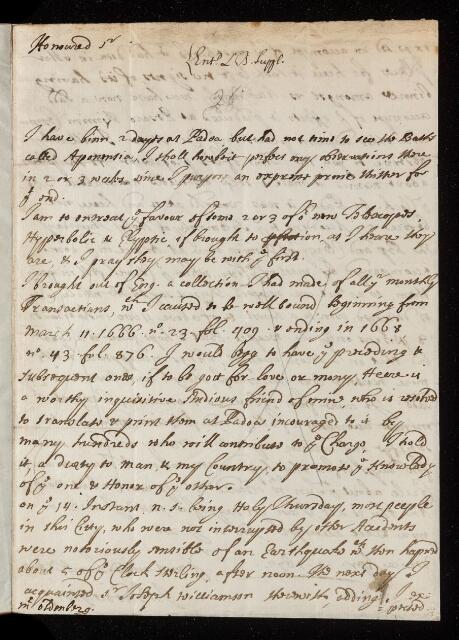 Honoured Sr
Entd LB. Suppl.
I have binn 2 days at Padoa but had not time to see the Baths
called Aponensia, I shall howbeit perfect my observations there
in 2 or 3 weeks since I purpose an expresse thither for
yt end.
I am to entreat ye favour of some 2 or 3 of ye new Telescopes
Hyperbolic & Elyptic, if brought to , as I heare they
are, & I pray they may be with ye first.
I brought out of Eng. a collection I had made, of all yr monthly
Transactions, wch I caused to be well bound beginning from
March 11. 1666. no. 23. fol. 409. & ending in 1668
no. 43. fol. 876. I would begg to have ye preceding &
subsequent ones, if to be gott for love or mony. Heere is
a worthy inquisitive studious friend of mine, who is resolved
to translate & print them at Padoa incouraged to it by
many hundreds who will contribute to ye Charge. I hold
it a duety to man & my Country, to promote ye Knowledg
of ye one & Honor of ye other.
on ye 14. Instant n.s. being Holy Thursday, most people
in this City, who were not interrupted by other Accidents
were notoriously sensible of an Earthquake wch then hapned
about 5 of ye Clock sterling, after noon. The next day I
acquainted Sr Joseph Williamson therewith, adding
Mr oldenberg.